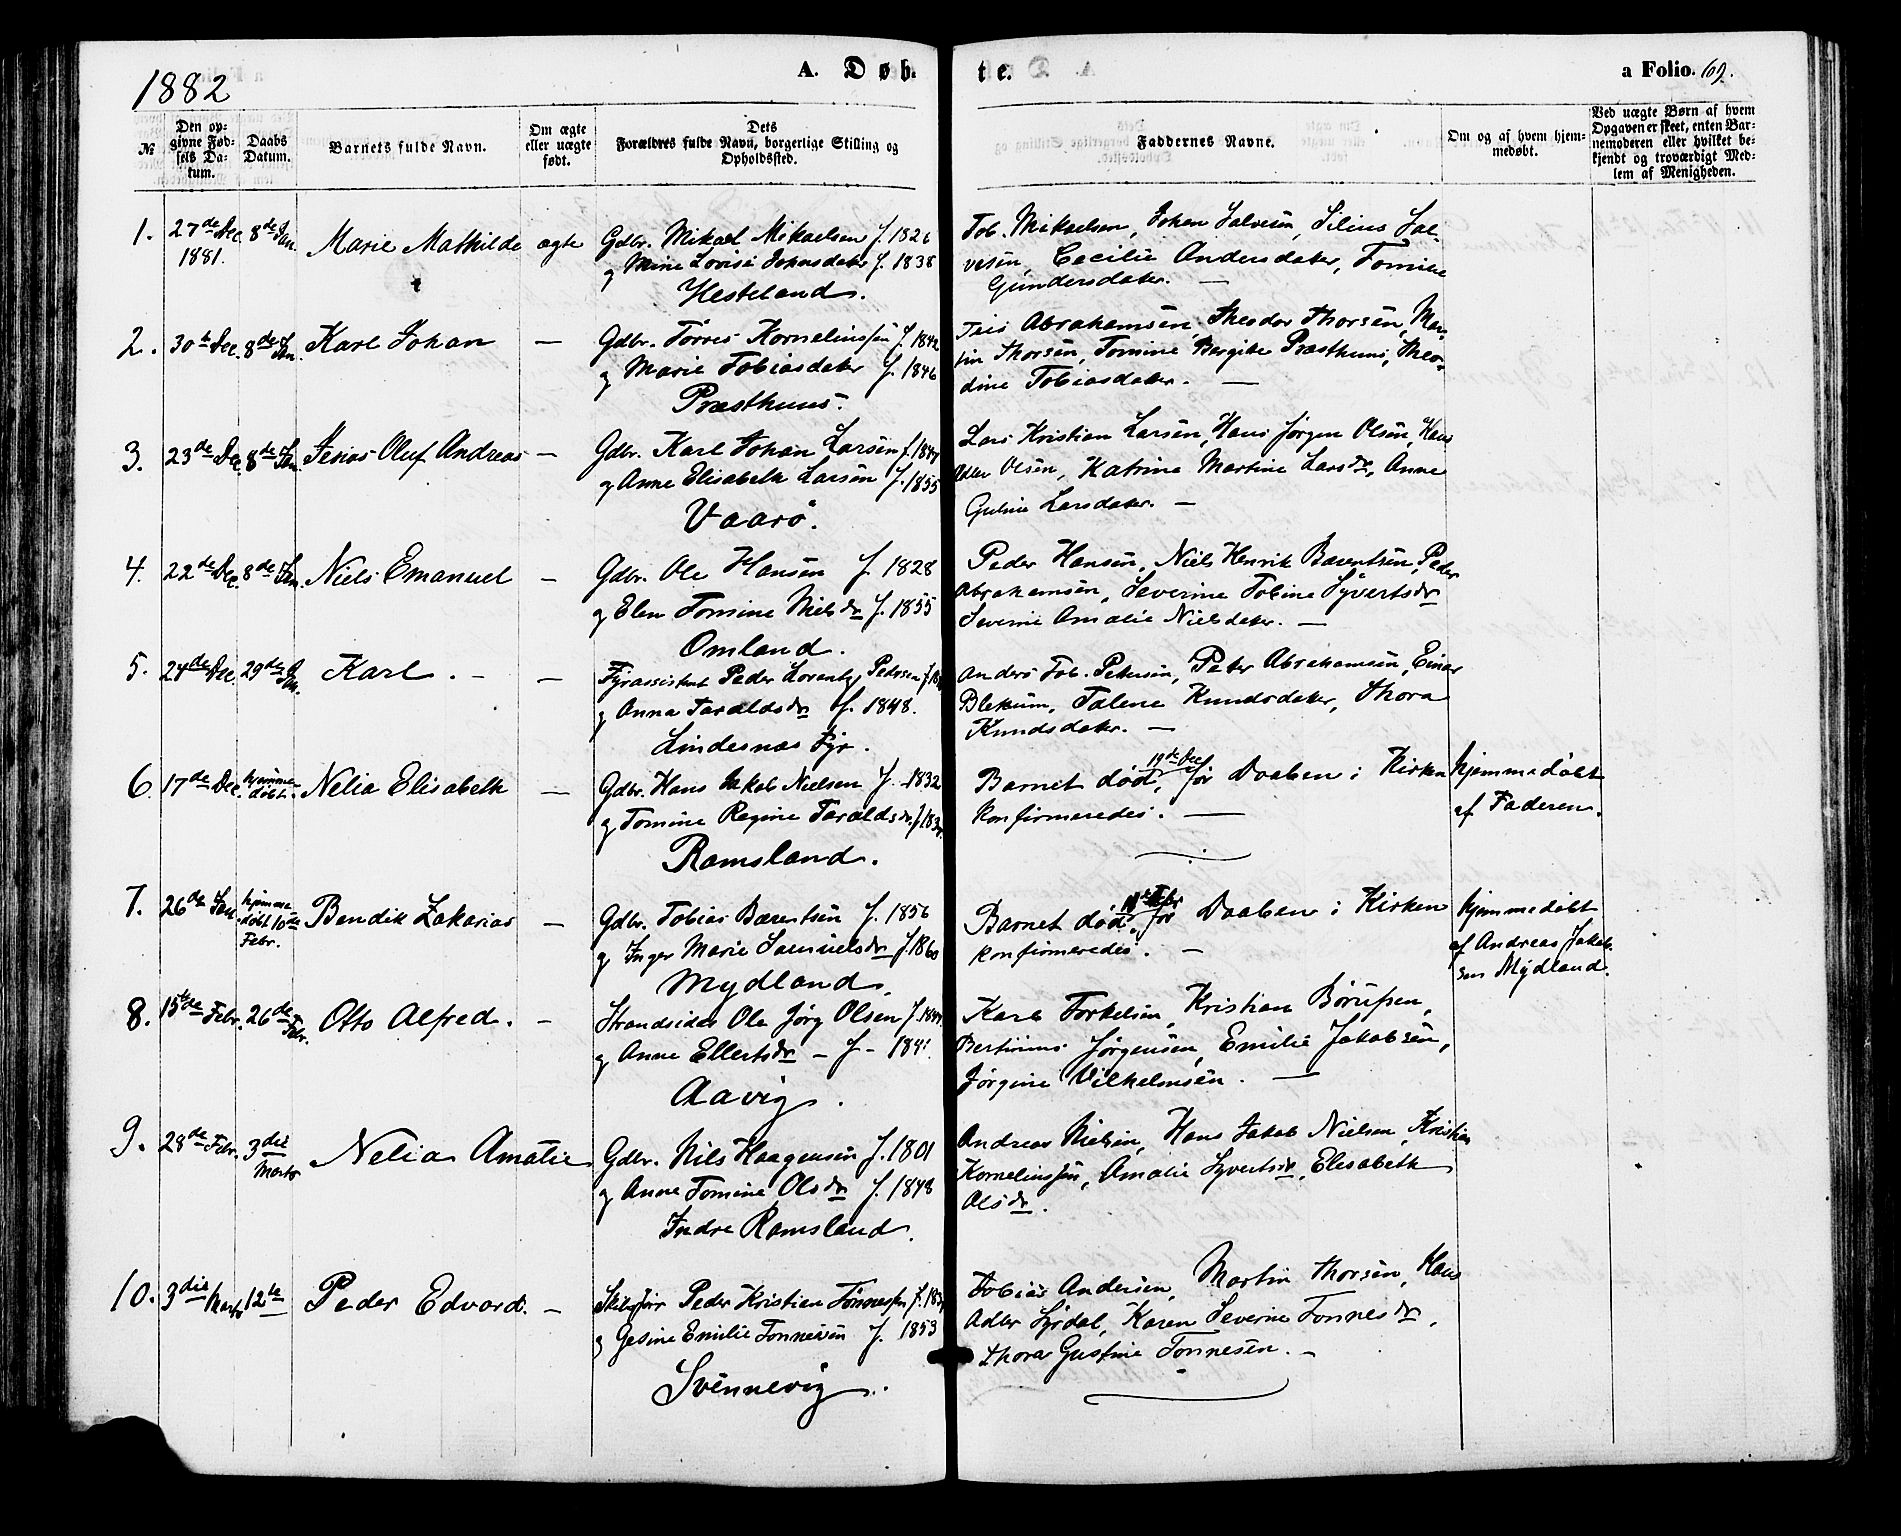 1882
A. Døb- te.
a Folio. 69.
№
Den opgivne Fødsels Datum.
Daabs Datum.
Barnets fulde Navn.
Om ægte eller uægte født.
Dets Forældres fulde Navn, borgerlige Stilling og Opholdssted.
Faddernes Navne.
Om og af hvem hjemmedøbt.
Ved uægte Børn af hvem Opgaven er skeet, enten Barnemoderen eller hvilket bekjendt og troværdigt Medlem af Menigheden.
1. 27de Dec. 1881. 8de Jan. Marie Mathilde ægte
Gdbr. Mikael Mikaelsen f. 1826
og Mine Lovise Johnsdater f. 1838
Hesteland.
Tob. Mikaelsen, Johan Salvesen, Silius Sal-
vesen, Cecilie Andersdater, Tomine
Gundersdater. —
2. 30te Dec. 8de Jan. Karl Johan —
Gdbr. Tørres Korneliussen f. 1842
og Marie Tobiasdater f. 1846
Præsthuus.
Teis Abrahamsen, Theodor Thorsen, Mar-
tin Thorsen, Tomine Bergite Præsthuus, Theo-
dine Tobiasdater. —
3. 23de Dec. 8de Jan. Jenias Oluf Andreas —
Gdbr. Karl Johan Larsen f.
og Anne Elisabeth Larsen f. 1855
Vaarø.
Lars Kristian Larsen, Hans Jørgen Olsen, Hans
Adler Olsen, Katrine Martine Larsdr, Anne
Guline Larsdater. —
4. 22de Dec. 8de Jan. Niels Emanuel —
Gdbr. Ole Hansen f. 1828
og Elen Tomine Nielsdr f. 1855
Omland.
Peder Hansen, Niels Henrik Barentsen, Peder
Abrahamsen, Severine Tobine Syvertsdr
Severine Amalie Nielsdater. —
5. 24de Dec. 29de Jan. Karl. — —
Fyrassistent Peder Lorentz Petersen
og Anna Taraldsdr f. 1848.
Lindesnæs Fyr.
Anders Tob. Petersen, Peter Abrahamsen, Einar
Blekum, Talene Knudsdater, Thora
Knudsdater. —
6. 17de Dec. hjemmedøbt. Nelia Elisabeth —
Gdbr. Hans Jakob Nielsen f. 1832
og Tomine Regine Taraldsdr
Ramsland.
Barnet død 19de Dec. før Daaben i Kirken
konfirmeredes. —
hjemmedøbt
af Faderen.
7. 26de Jan. hjemmedøbt 10de Febr. Bendik Zakarias —
Gdbr. Tobias Barentsen f. 1856
og Inger Marie Samuelsdr f. 1860
Mydland.
Barnet død Febr før Daaben i Kirken
konfirmeredes. —
hjemmedøbt
af Andreas Jakob-
sen Mydland.
8. 15de Febr. 26de Febr. Otto Alfred. —
Strandsidder Ole Jørg Olsen f.
og Anne Ellertsdr — f — 1841.
Aavig.
Karl Torkelsen, Kristian Børufsen,
Bertinius Jørgensen, Emilie Jakobsen,
Jørgine Vilhelmsen. —
9. 28de Febr. 3die Marts Nelia Amalie
Gdbr. Nils Haagensen f. 1801
og Anne Tomine Olsdr f. 1848
Indre Ramsland.
Andreas Nielsen, Hans Jakob Nielsen, Kristian
Korneliussen, Amalie Syvertsdr, Elisabeth
Olsdr.
10. 3die Marts 12te Peder Edvard. —
Skibsfør Peder Kristian Tønnessen
og Gesine Emilie Tonnesen f. 1853
Svennevig.
Tobias Andersen, Martin Thorsen, Hans
Adler Syrdal, Karen Severine Tonnesdr,
Thora Gustine Tonnesen. —